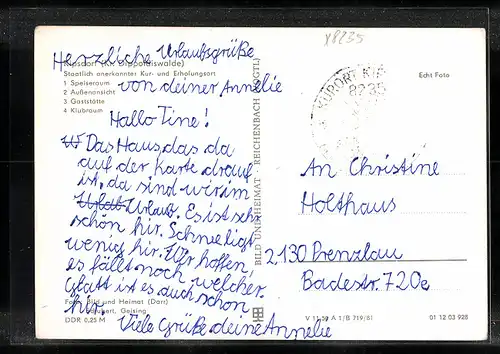 x8235
Herzliche Urlaubsgrüße
Kipsdorf (Kr. Dippoldiswalde)
Staatlich anerkannter Kur- und Erholungsort
1 Speiseraum
2 Außenansicht
3 Gaststätte
4 Klubraum
von deiner Annelie
Hallo Tine!
Das Haus, das da
auf der Karte drauf
ist, da sind wir im
Urlaub. Es ist sehr
schön hir. Schnee ligt
wenig hir. Wir hoffen,
es fällt noch welcher.
Glatt ist es duch schon
hir.
Viele Grüße deine Annelie
Foto: Bild und Heimat (Darr)
Geising
DDR 0,25 M
BILD UND HEIMAT · REICHENBACH (VOGTL)
Echt Foto
KURORT KIP
8235
An Christine
Holthaus
2130 Prenzlau
Badestr. 720e
V 11 50 A 1/B 719/81
01 12 03 928